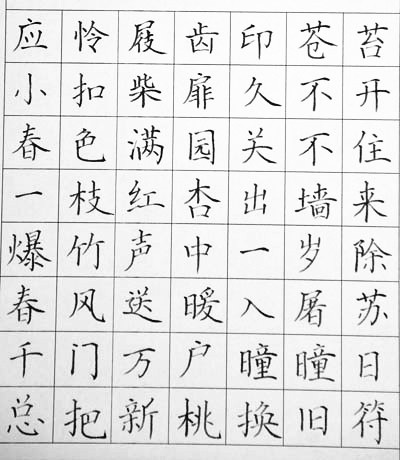 应怜屐齿印苍苔
小扣柴扉久不开
春色满园关不住
一枝红杏出墙来
爆竹声中一岁除
春风送暖入屠苏
千门万户曈曈日
总把新桃换旧符